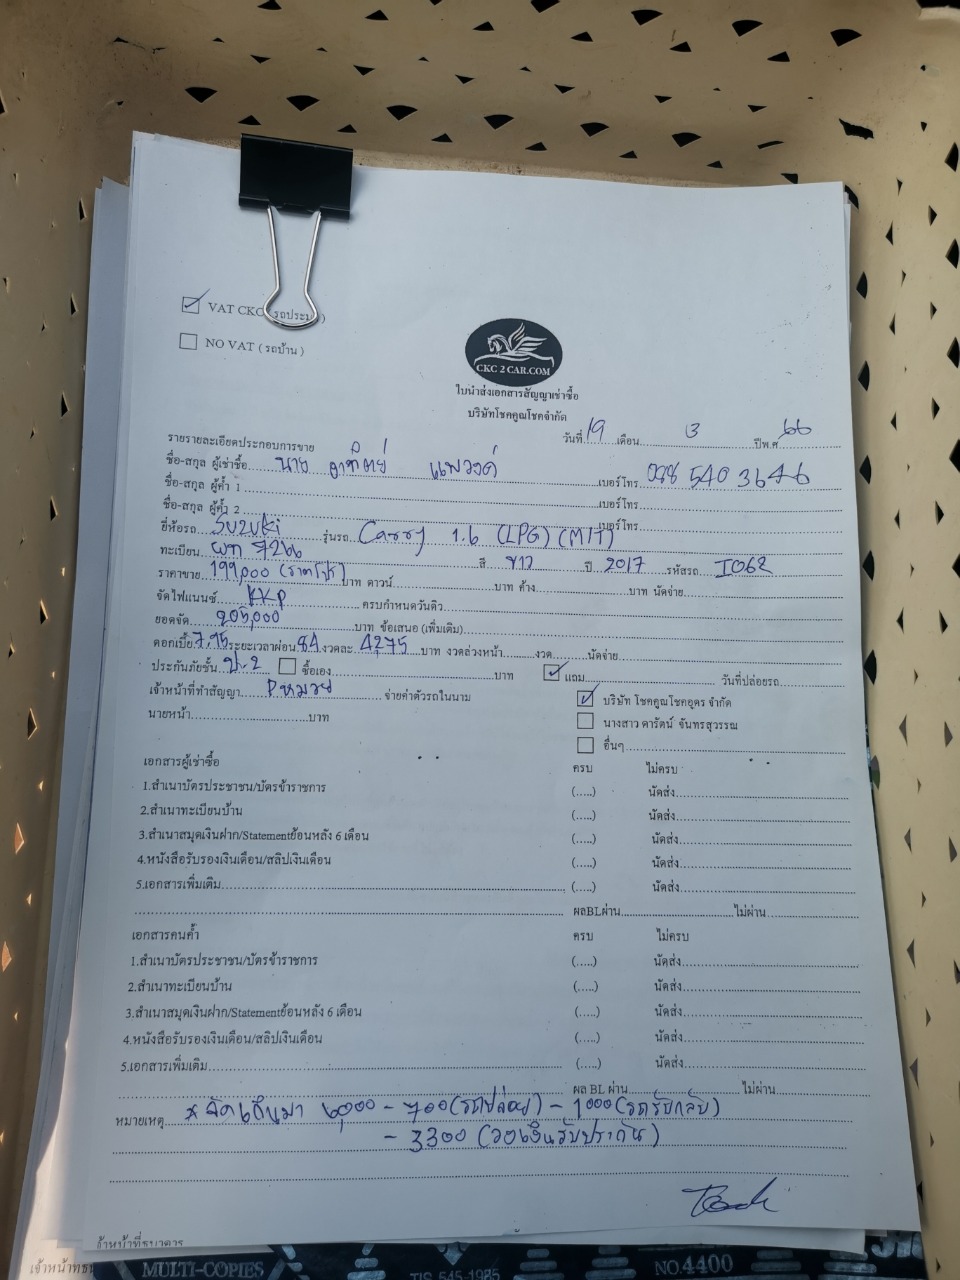 VAT CKC (รถประมูล)
NO VAT ( รถบ้าน )
CKC 2 CAR.COM
ใบนำส่งเอกสารสัญญาเช่าซื้อ
บริษัทโชคคูณโชคจำกัด
วันที่ 19 เดือน 3 ปีพ.ศ. 66
รายรายละเอียดประกอบการขาย
ชื่อ-สกุล ผู้เช่าซื้อ นาย อาทิตย์ แพวงค์ เบอร์โทร 098 540 3646
ชื่อ-สกุล ผู้ค้ำ 1 เบอร์โทร
ชื่อ-สกุล ผู้ค้ำ 2 เบอร์โทร
ยี่ห้อรถ Suzuki รุ่นรถ Carry 1.6 (LPG) (MIT)
ทะเบียน ผท 7266 สี ขาว ปี 2017 รหัสรถ I062
ราคาขาย 199,000 (ราคาโปร) บาท ดาวน์ บาท ค้าง บาท นัดจ่าย
จัดไฟแนนซ์ KKP ครบกำหนดวันคิว
ยอดจัด 205,000 บาท ข้อเสนอ (เพิ่มเติม)
ดอกเบี้ย 7.95 ระยะเวลาผ่อน 84 งวดละ 4275 บาท งวดล่วงหน้า งวด นัดจ่าย
ประกันภัยชั้น ป.2 ซื้อเอง บาท แถม วันที่ปล่อยรถ
เจ้าหน้าที่ทำสัญญา P'หมวย จ่ายค่าตัวรถในนาม บริษัท โชคคูณโชคอุดร จำกัด
นายหน้า บาท นางสาว ดารัตน์ จันทรสุวรรณ
อื่นๆ
เอกสารผู้เช่าซื้อ ครบ ไม่ครบ
1.สำเนาบัตรประชาชน/บัตรข้าราชการ (.....) นัดส่ง
2.สำเนาทะเบียนบ้าน (.....) นัดส่ง
3.สำเนาสมุดเงินฝาก/Statementย้อนหลัง 6 เดือน (.....) นัดส่ง
4.หนังสือรับรองเงินเดือน/สลิปเงินเดือน (.....) นัดส่ง
5.เอกสารเพิ่มเติม (.....) นัดส่ง
ผลBLผ่าน ไม่ผ่าน
เอกสารคนค้ำ ครบ ไม่ครบ
1.สำเนาบัตรประชาชน/บัตรข้าราชการ (.....) นัดส่ง
2.สำเนาทะเบียนบ้าน (.....) นัดส่ง
3.สำเนาสมุดเงินฝาก/Statementย้อนหลัง 6 เดือน (.....) นัดส่ง
4.หนังสือรับรองเงินเดือน/สลิปเงินเดือน (.....) นัดส่ง
5.เอกสารเพิ่มเติม (.....) นัดส่ง
ผล BL ผ่าน ไม่ผ่าน
หมายเหตุ * จัดเกินมา 6,000 - 700 (รถปล่อย) - 1000 (รถรับกลับ)
- 3300 (จองเงินรับประกัน)
เจ้าหน้าที่ธนาคาร
MULTI-COPIES TIS 545-1985 NO.4400